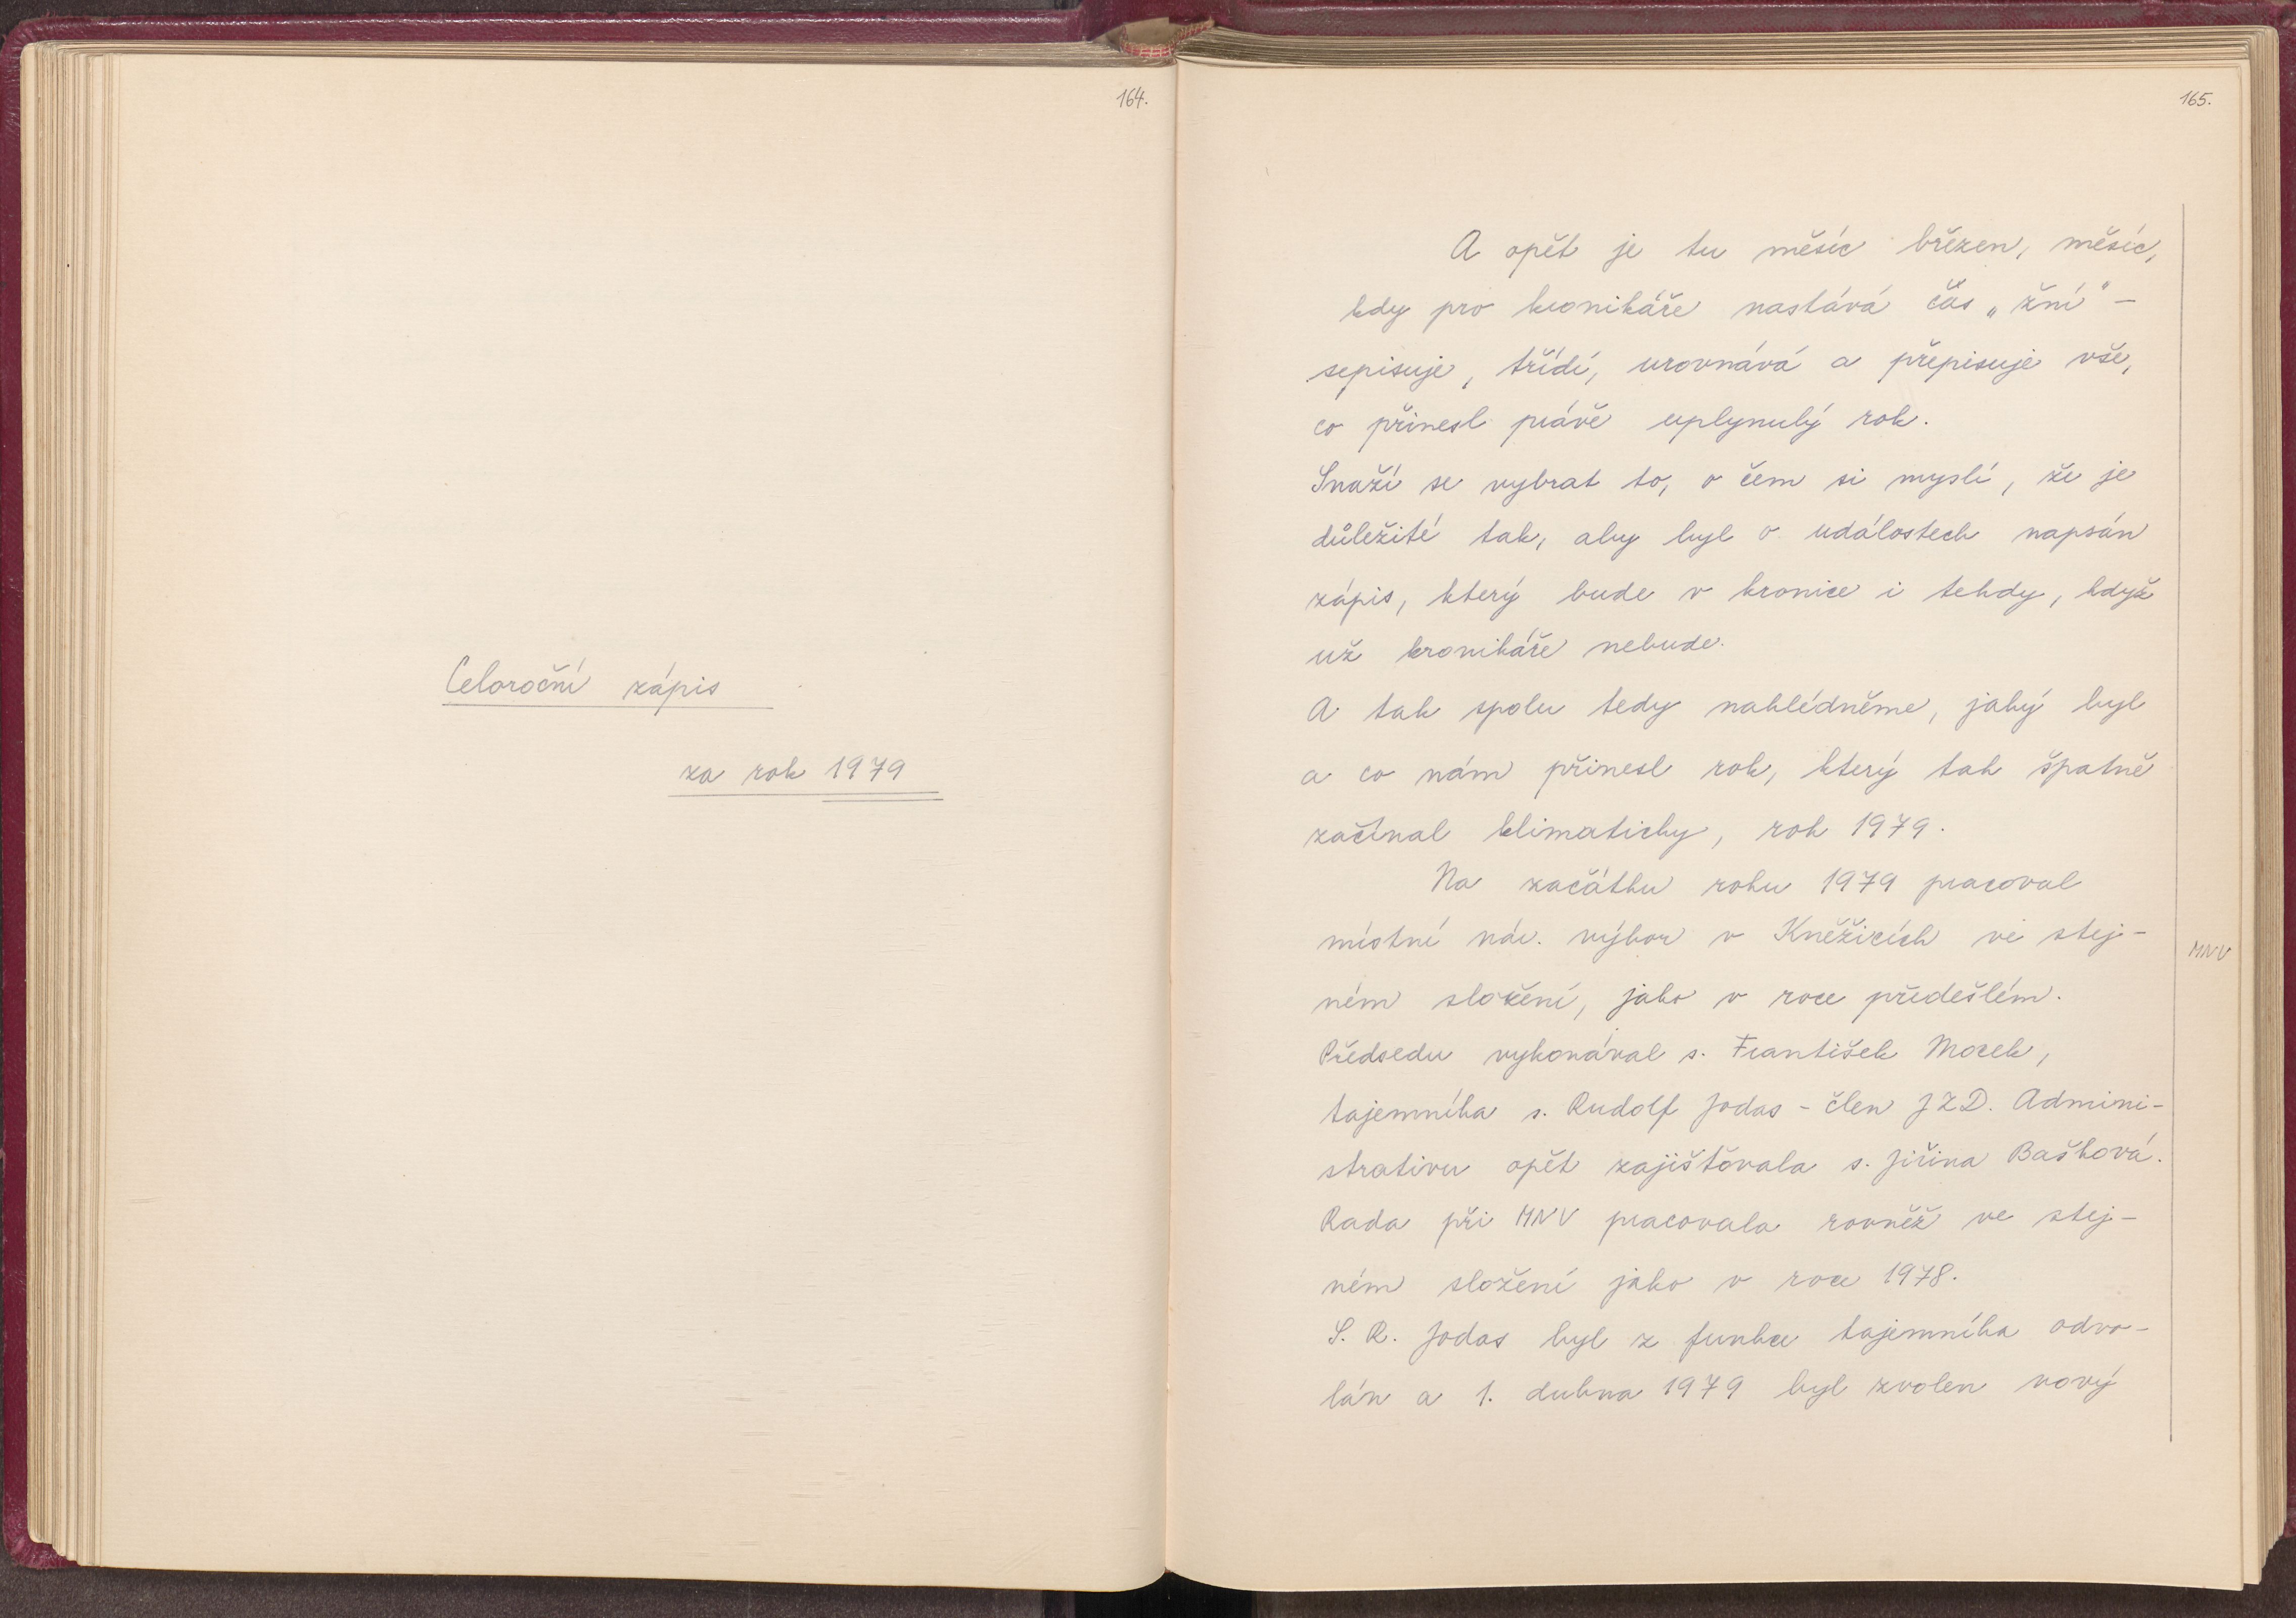 164.
Celoroční zápis
za rok 1979
165.
A opět je tu měsíc březen, měsíc,
kdy pro kronikáře nastává čas „žní" -
sepisuje, třídí, urovnává a přepisuje vše,
co přinesl právě uplynulý rok.
Snaží se vybrat to, o čem si myslí, že je
důležité tak, aby byl o událostech napsán
zápis, který bude v kronice i tehdy, když
už kronikáře nebude.
A tak spolu tedy nahlédněme, jaký byl
a co nám přinesl rok, který tak špatně
začínal klimaticky, rok 1979.
Na začátku roku 1979 pracoval
místní nár. výbor v Kněžicích ve stej-
MNV
ném složení, jako v roce předešlém.
Předsedu vykonával s. František Mocek,
tajemníka s. Rudolf Jodas - člen JZD. Admini-
strativu opět zajišťovala s. Jiřina Bašková.
Rada při MNV pracovala rovněž ve stej-
ném složení jako v roce 1978.
S. R. Jodas byl z funkce tajemníka odvo-
lán a 1. dubna 1979 byl zvolen nový